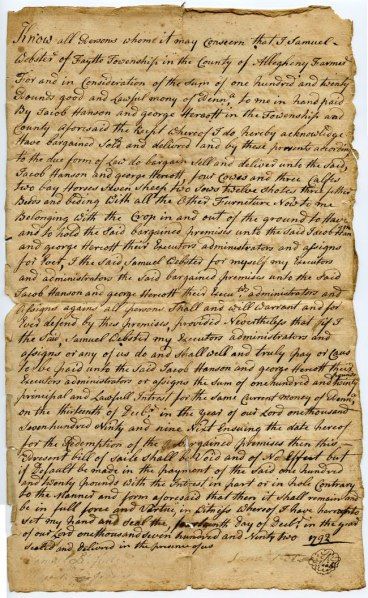 Know all Persons whome it may Concern that I Samuel
Webster of Faytte Township in the County of Allegheny Farmer
For and in Consideration of the Sum of one hundred and twenty
Pounds good and Lawful mony of Penna to me in hand paid
By Jacob Hanson and george Hercott in the Township and
County aforesaid the Recept Whereof I do hereby acknowledge
Have bargained Sold and deliverd and by these presents according
to the due form of Law do bargain Sell and deliver unto the Said
Jacob Hanson and george Hercott, four Cowes and three Calfs
two bay Horses Seven Sheep two Sows twelve Shotes three
Beds and beding With all the Other Furneture Now to me
Belonging With the Crop in and out of the ground to Have
and to hold the Said bargained premises unto the Said Jacob
and george Hercott their Executors administrators and asigns
for Ever, I the Said Samuel Webster for myself my Executors
and administrators the Said bargained premises unto the Said
Jacob Hanson and george Hercott their administrators and
asigns against all persons Shall and Will Warrant and for
Ever defend by this premises, provided Nevertheless that if I
the Said Samuel Webster my Executors administrators and
asigns or any of us do and Shall Well and truly pay or Caus
to be paid unto the Said Jacob Hanson and george Hercott their
Executors administrators or asigns the Sum of one hundred and twenty
principal and Lawfull Intrest for the Same Current money of
on the thirteenth of in the year of our Lord one thousand
Seven hundred Ninty and nine Next Ensuing the date hereof
for the Redemption of the bargained premises then this
present bill of Saile Shall be Void and of No Effect but
if Default be made in the payment of the Said one hundred
and twenty pounds With the Intrest in part or in hole Contrary
to the Manner and form aforesaid that then it Shall remain and
be in full force and Virtue, in Witness Whereof I have hereunto
Set my hand and Seal the day of in the year
of our Lord one thousand Seven hundred and Ninty two 1792
Sealed and delivered in the presence of us